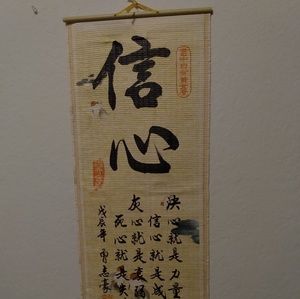 信心
決心就是力量
信心就是成
灰心就是
死心就是失
戊辰年